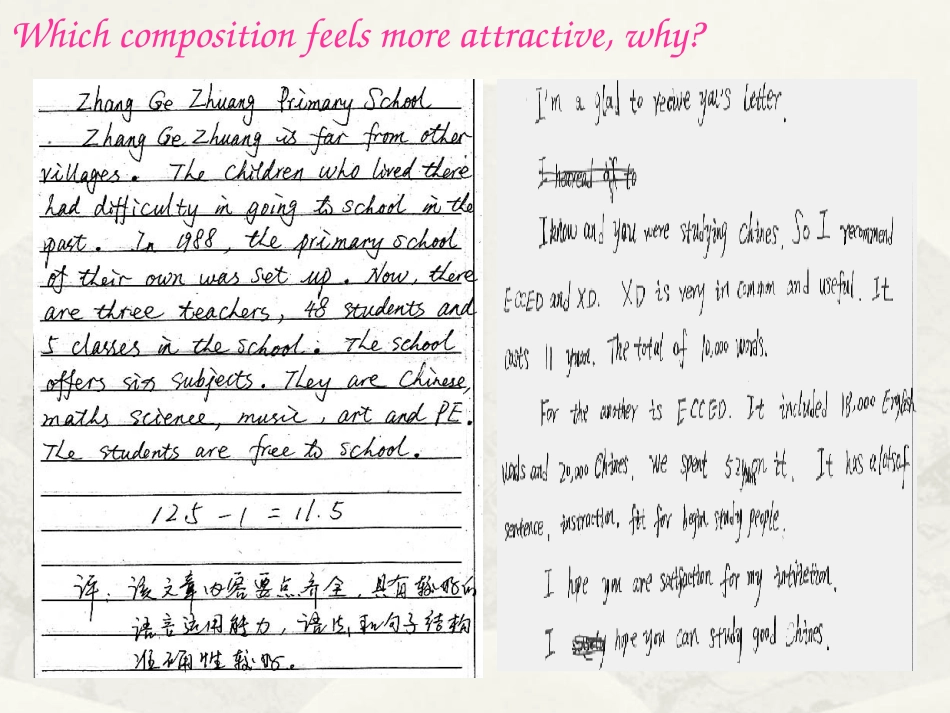 Which composition feels more attractive, why?
Zhang Ge Zhuang Primary School
Zhang Ge Zhuang is far from other
villages. The children who lived there
had difficulty in going to school in the
past. In 1988, the primary school
of their own was set up. Now, there
are three teachers, 48 students and
5 classes in the school. The school
offers six subjects. They are Chinese,
maths science, music, art and PE.
The students are free to school.
12.5 - 1 = 11.5
评:该文章内容要点齐全,具有较好的
语言运用能力,语法和句子结构
准确性较好。
I'm a glad to recive you's letter.
I know and you were studying chines. So I recommend
ECCED and XD. XD is very in common and useful. It
costs 11 yuan. The total of 10,000 words.
For the another is ECCED. It included 18,000 English
words and 20,000 Chines. We spent 52 yuan it. It has a lots of
sentence, instraction. fit for begin study people.
I hope you are satifaction for my
I hope you can study good Chines.